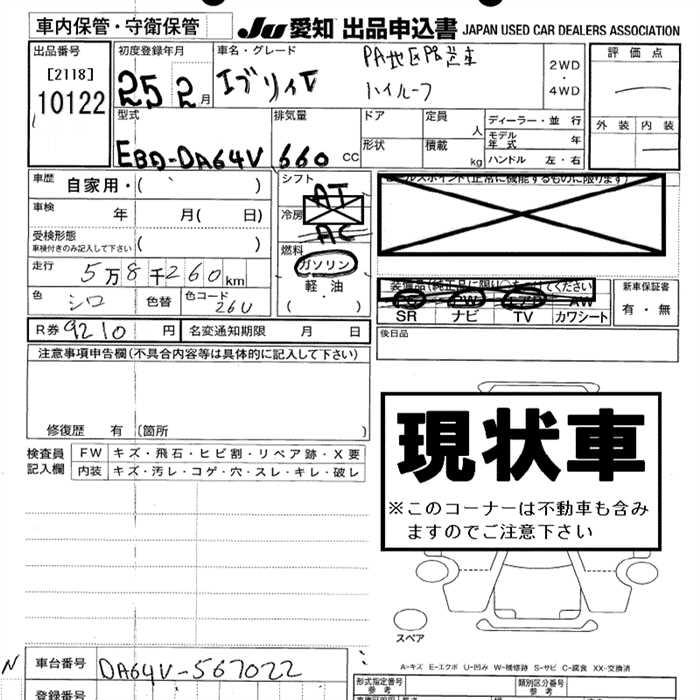 車内保管・守衛保管 JU 愛知 出品申込書 JAPAN USED CAR DEALERS ASSOCIATION
出品番号 初度登録年月 車名・グレード 評価点
[2118] 10122 25 2月 エブリィV PA地区PA営車 ハイルーフ 2WD・4WD
型式 排気量 ドア 定員 人 ディーラー・並行 外装 内装
モデル年式 年
EBD-DA64V 660 CC 形状 積載 kg ハンドル 左・右
車歴 自家用・( ) シフト AT
車検 年 月( 日) 冷房 AC
受検形態 車検付きのみ記入して下さい ( ) 燃料 ガソリン
走行 5万8千260km 軽油 ( )
装備品(純正品に限り をつけてください 新車保証書
色 シロ 色替 色コード 26U
PS PW エアB AW 有・無
SR ナビ TV カワシート
R券 9210円 名変通知期限 月 日 後日品
注意事項申告欄(不具合内容等は具体的に記入して下さい)
修復歴 有 (箇所 )
現状車
※このコーナーは不動車も含み
ますのでご注意下さい
検査員記入欄 FW キズ・飛石・ヒビ割・リペア跡・X要
内装 キズ・汚レ・コゲ・穴・スレ・キレ・破レ
スペア
A=キズ E=エクボ U=凹み W=補修跡 S=サビ C=腐食 XX=交換済
N 車台番号 DA64V-567022 形式指定番号 参考 類別区分番号 参考
登録番号